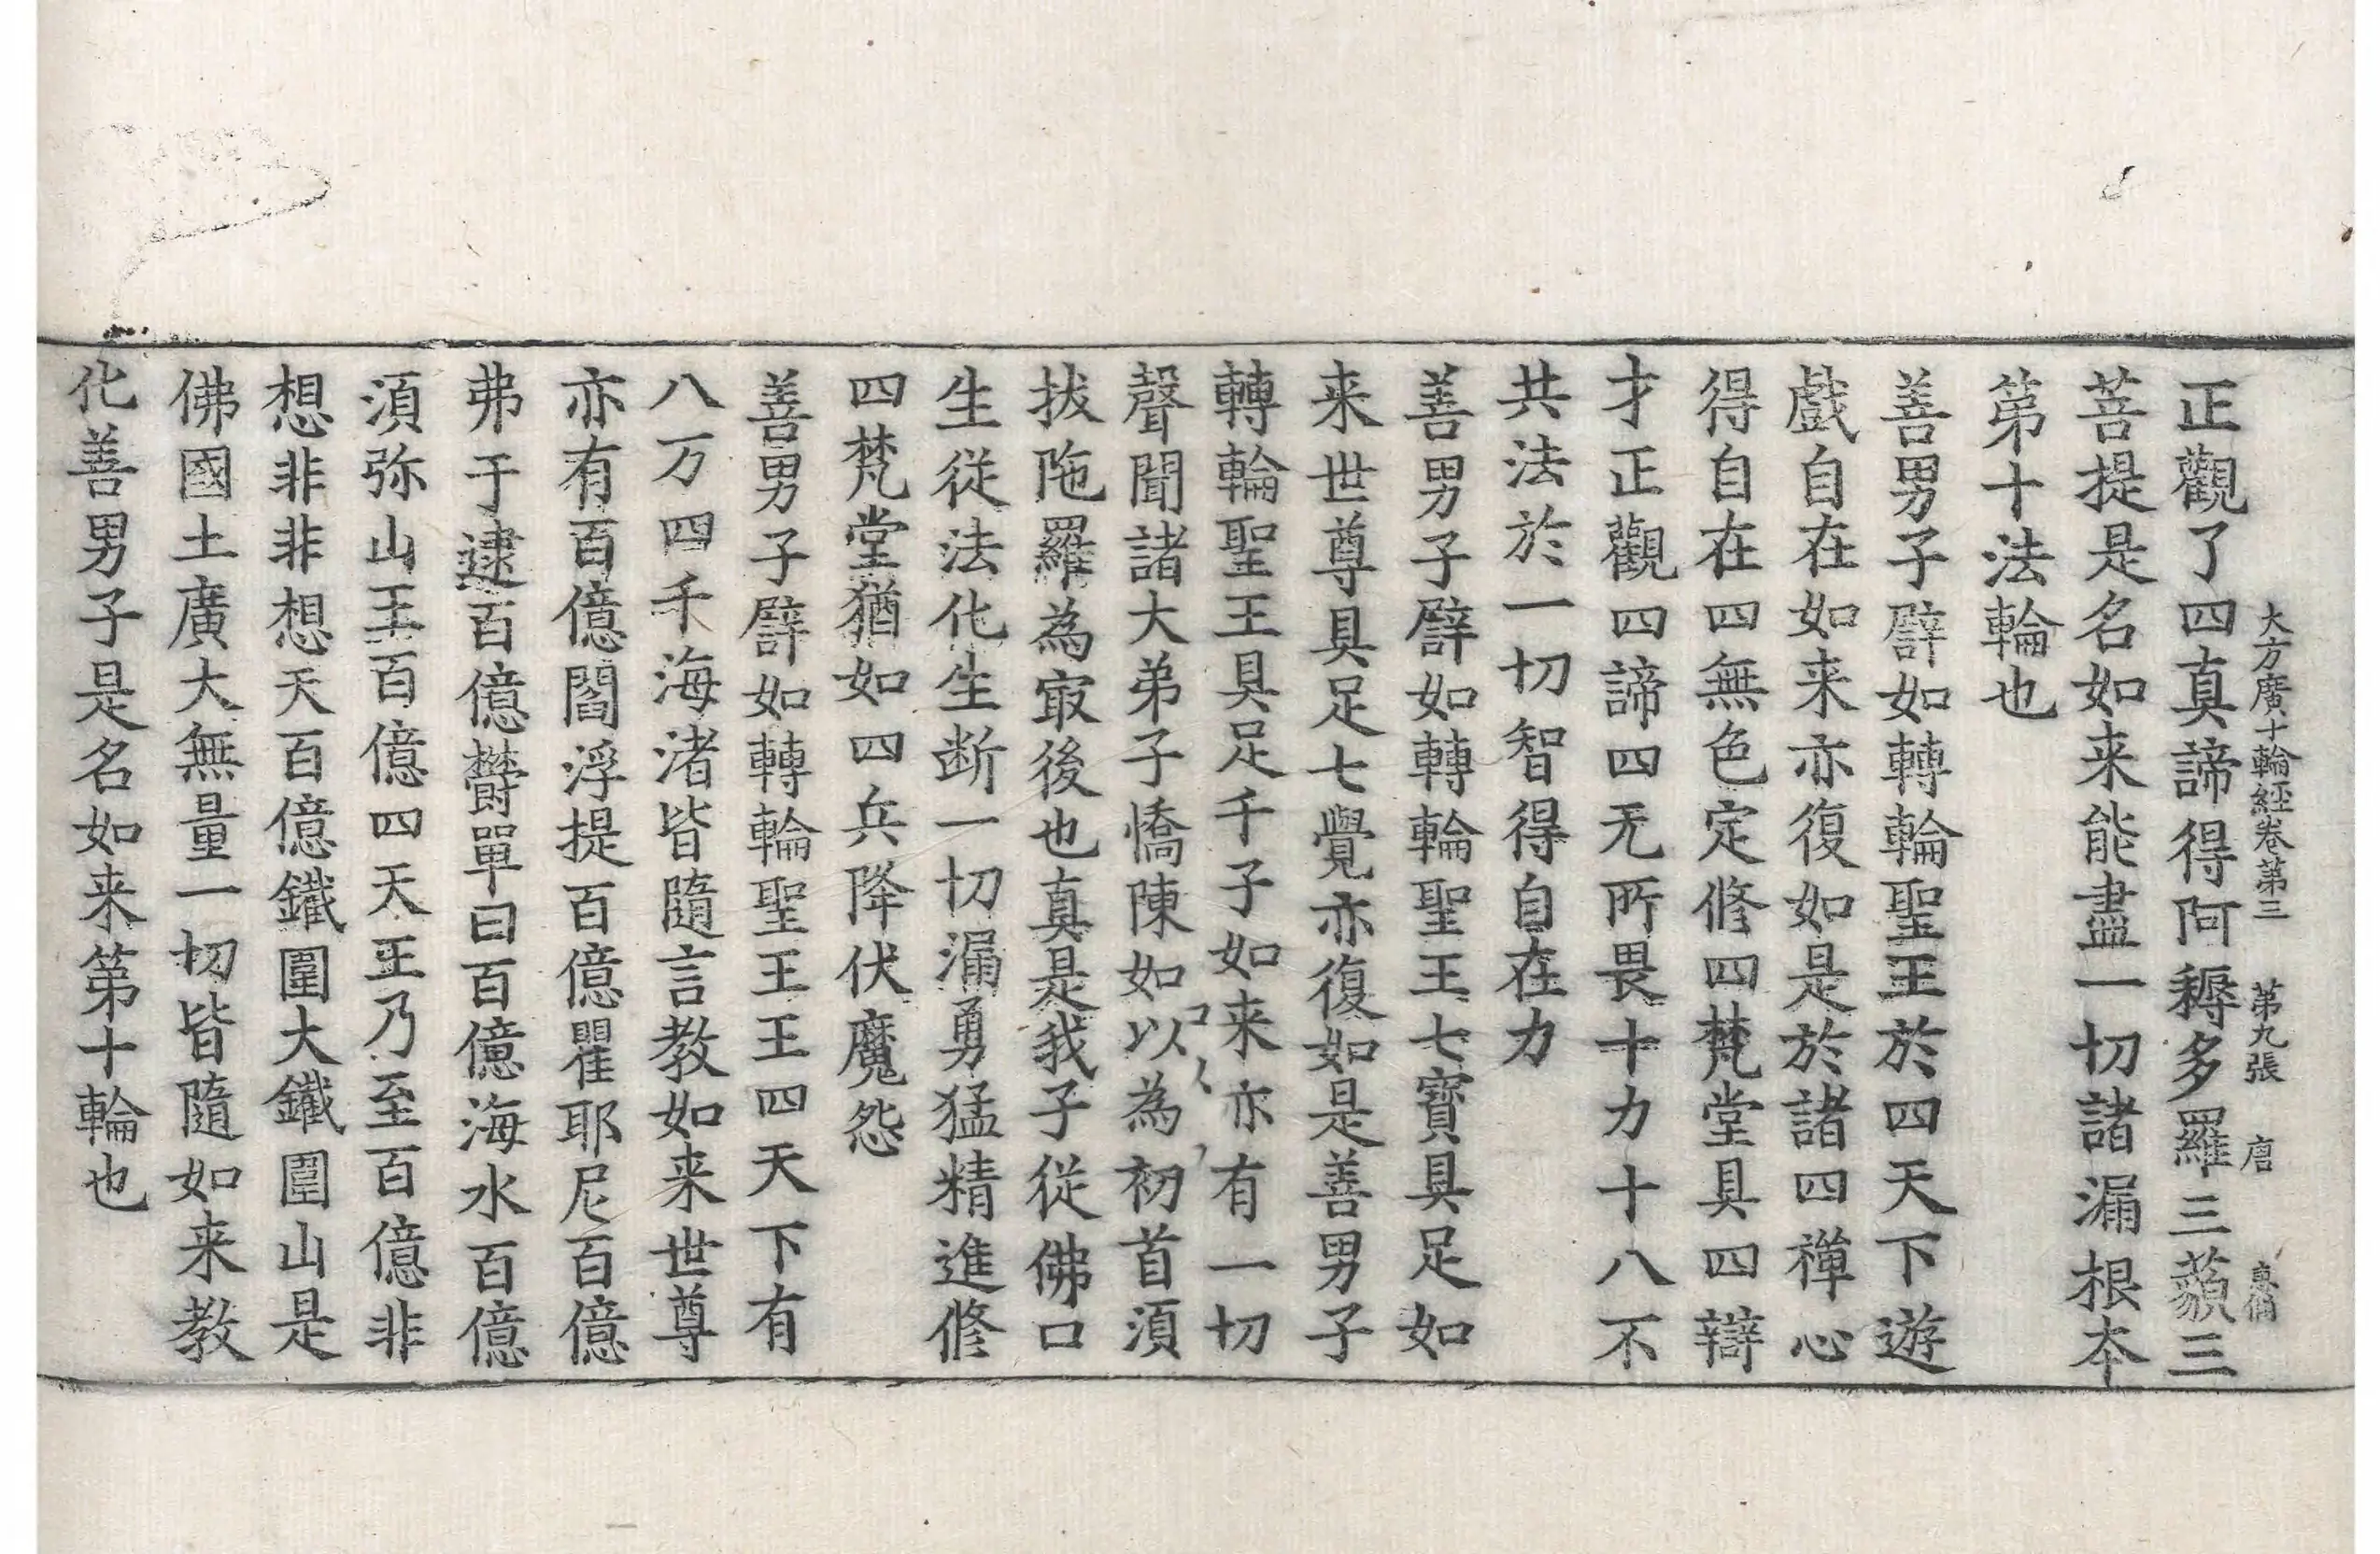 大方廣十輪經卷第三　第九張　唐
正觀了四真諦得阿耨多羅三藐三
菩提是名如来能盡一切諸漏根本
第十法輪也
善男子譬如轉輪聖王於四天下遊
戲自在如来亦復如是於諸四禪心
得自在四無色定修四梵堂具四辯
才正觀四諦四无所畏十力十八不
共法於一切智得自在力
善男子譬如轉輪聖王七寶具足如
来世尊具足七覺亦復如是善男子
轉輪聖王具足千子如来亦有一切
聲聞諸大弟子憍陳如以為初首須
拔陁羅為㝡後也真是我子從佛口
生從法化生断一切漏勇猛精進修
四梵堂猶如四兵降伏魔怨
善男子譬如轉輪聖王王四天下有
八万四千海渚皆隨言教如来世尊
亦有百億閻浮提百億瞿耶尼百億
弗于逮百億欝單曰百億海水百億
須弥山王百億四天王乃至百億非
想非非想天百億鐵圍大鐵圍山是
佛國土廣大無量一切皆隨如来教
化善男子是名如来第十輪也